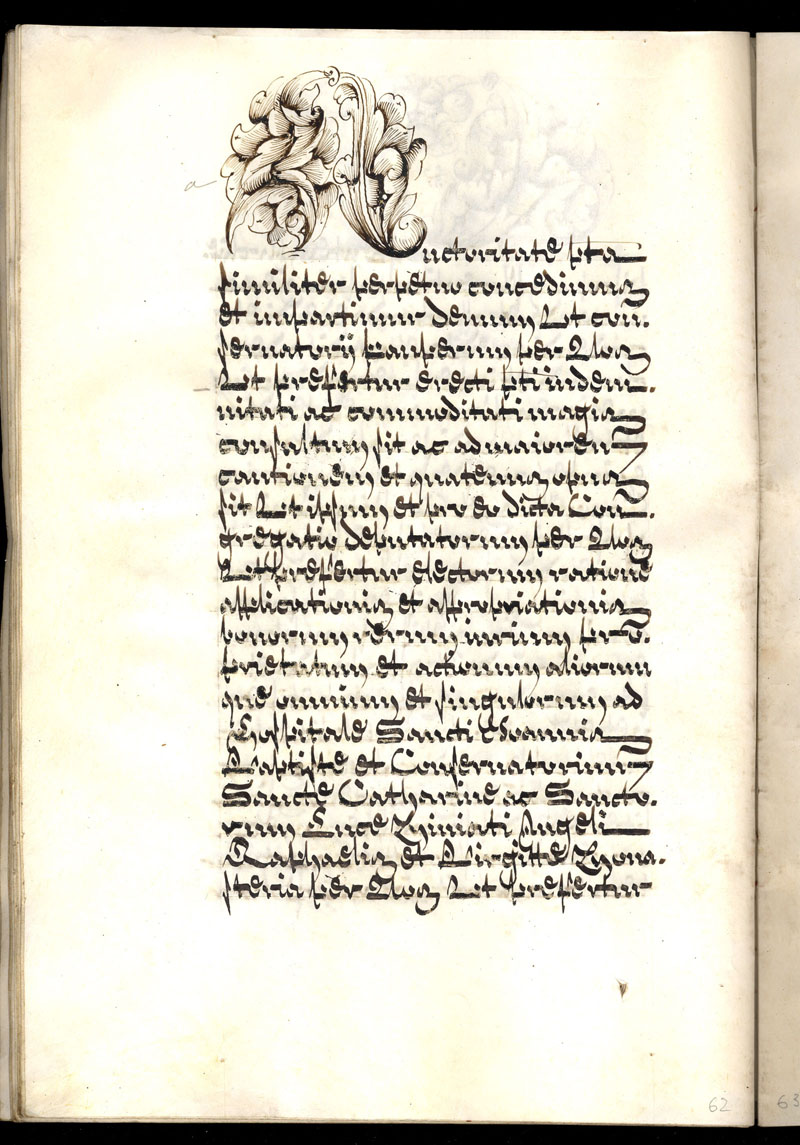 a
Auctoritate pta
similiter perpetuo concedimus
et impartimur demum Ut con.
servatorij Pauperum per Nos
Ut prefertur erecti pti indem.
nitati ac commoditati magis
consultum sit ac ad maiorem
cautionem et quatenus opus
sit Ut ipsum et pro eo dicta Con.
gregatio deputatorum per Nos
Ut prefertur electorum ratione
applicationis et appropriationis
bonorum rerum iurium pro.
prietatum et actionum aliorum
que omnium et singulorum ad
Hospitale Sancti Joannis
Baptiste et Conservatorium
Sancte Catharine ac Sancto.
rum Luce Miniati Angeli
Raphaelis et Birgitte Mona.
steria per Nos Ut prefertur
62
63